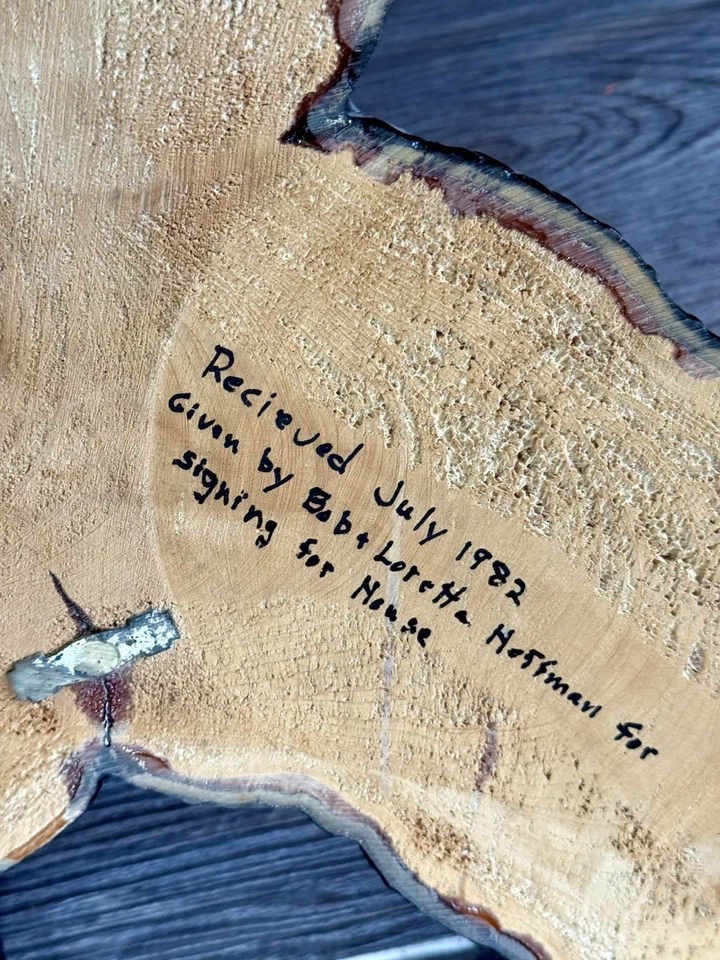 Recieved July 1982
Given by Bob + Loretta Hoffman for
signing for House